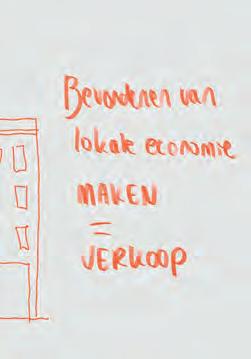 Bevorderen van
lokale economie
MAKEN
=
VERKOOP